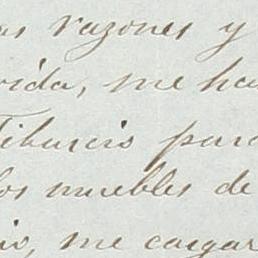 as razones y
vida, me ha
Tiburcio para
los muebles de
io, me cargar